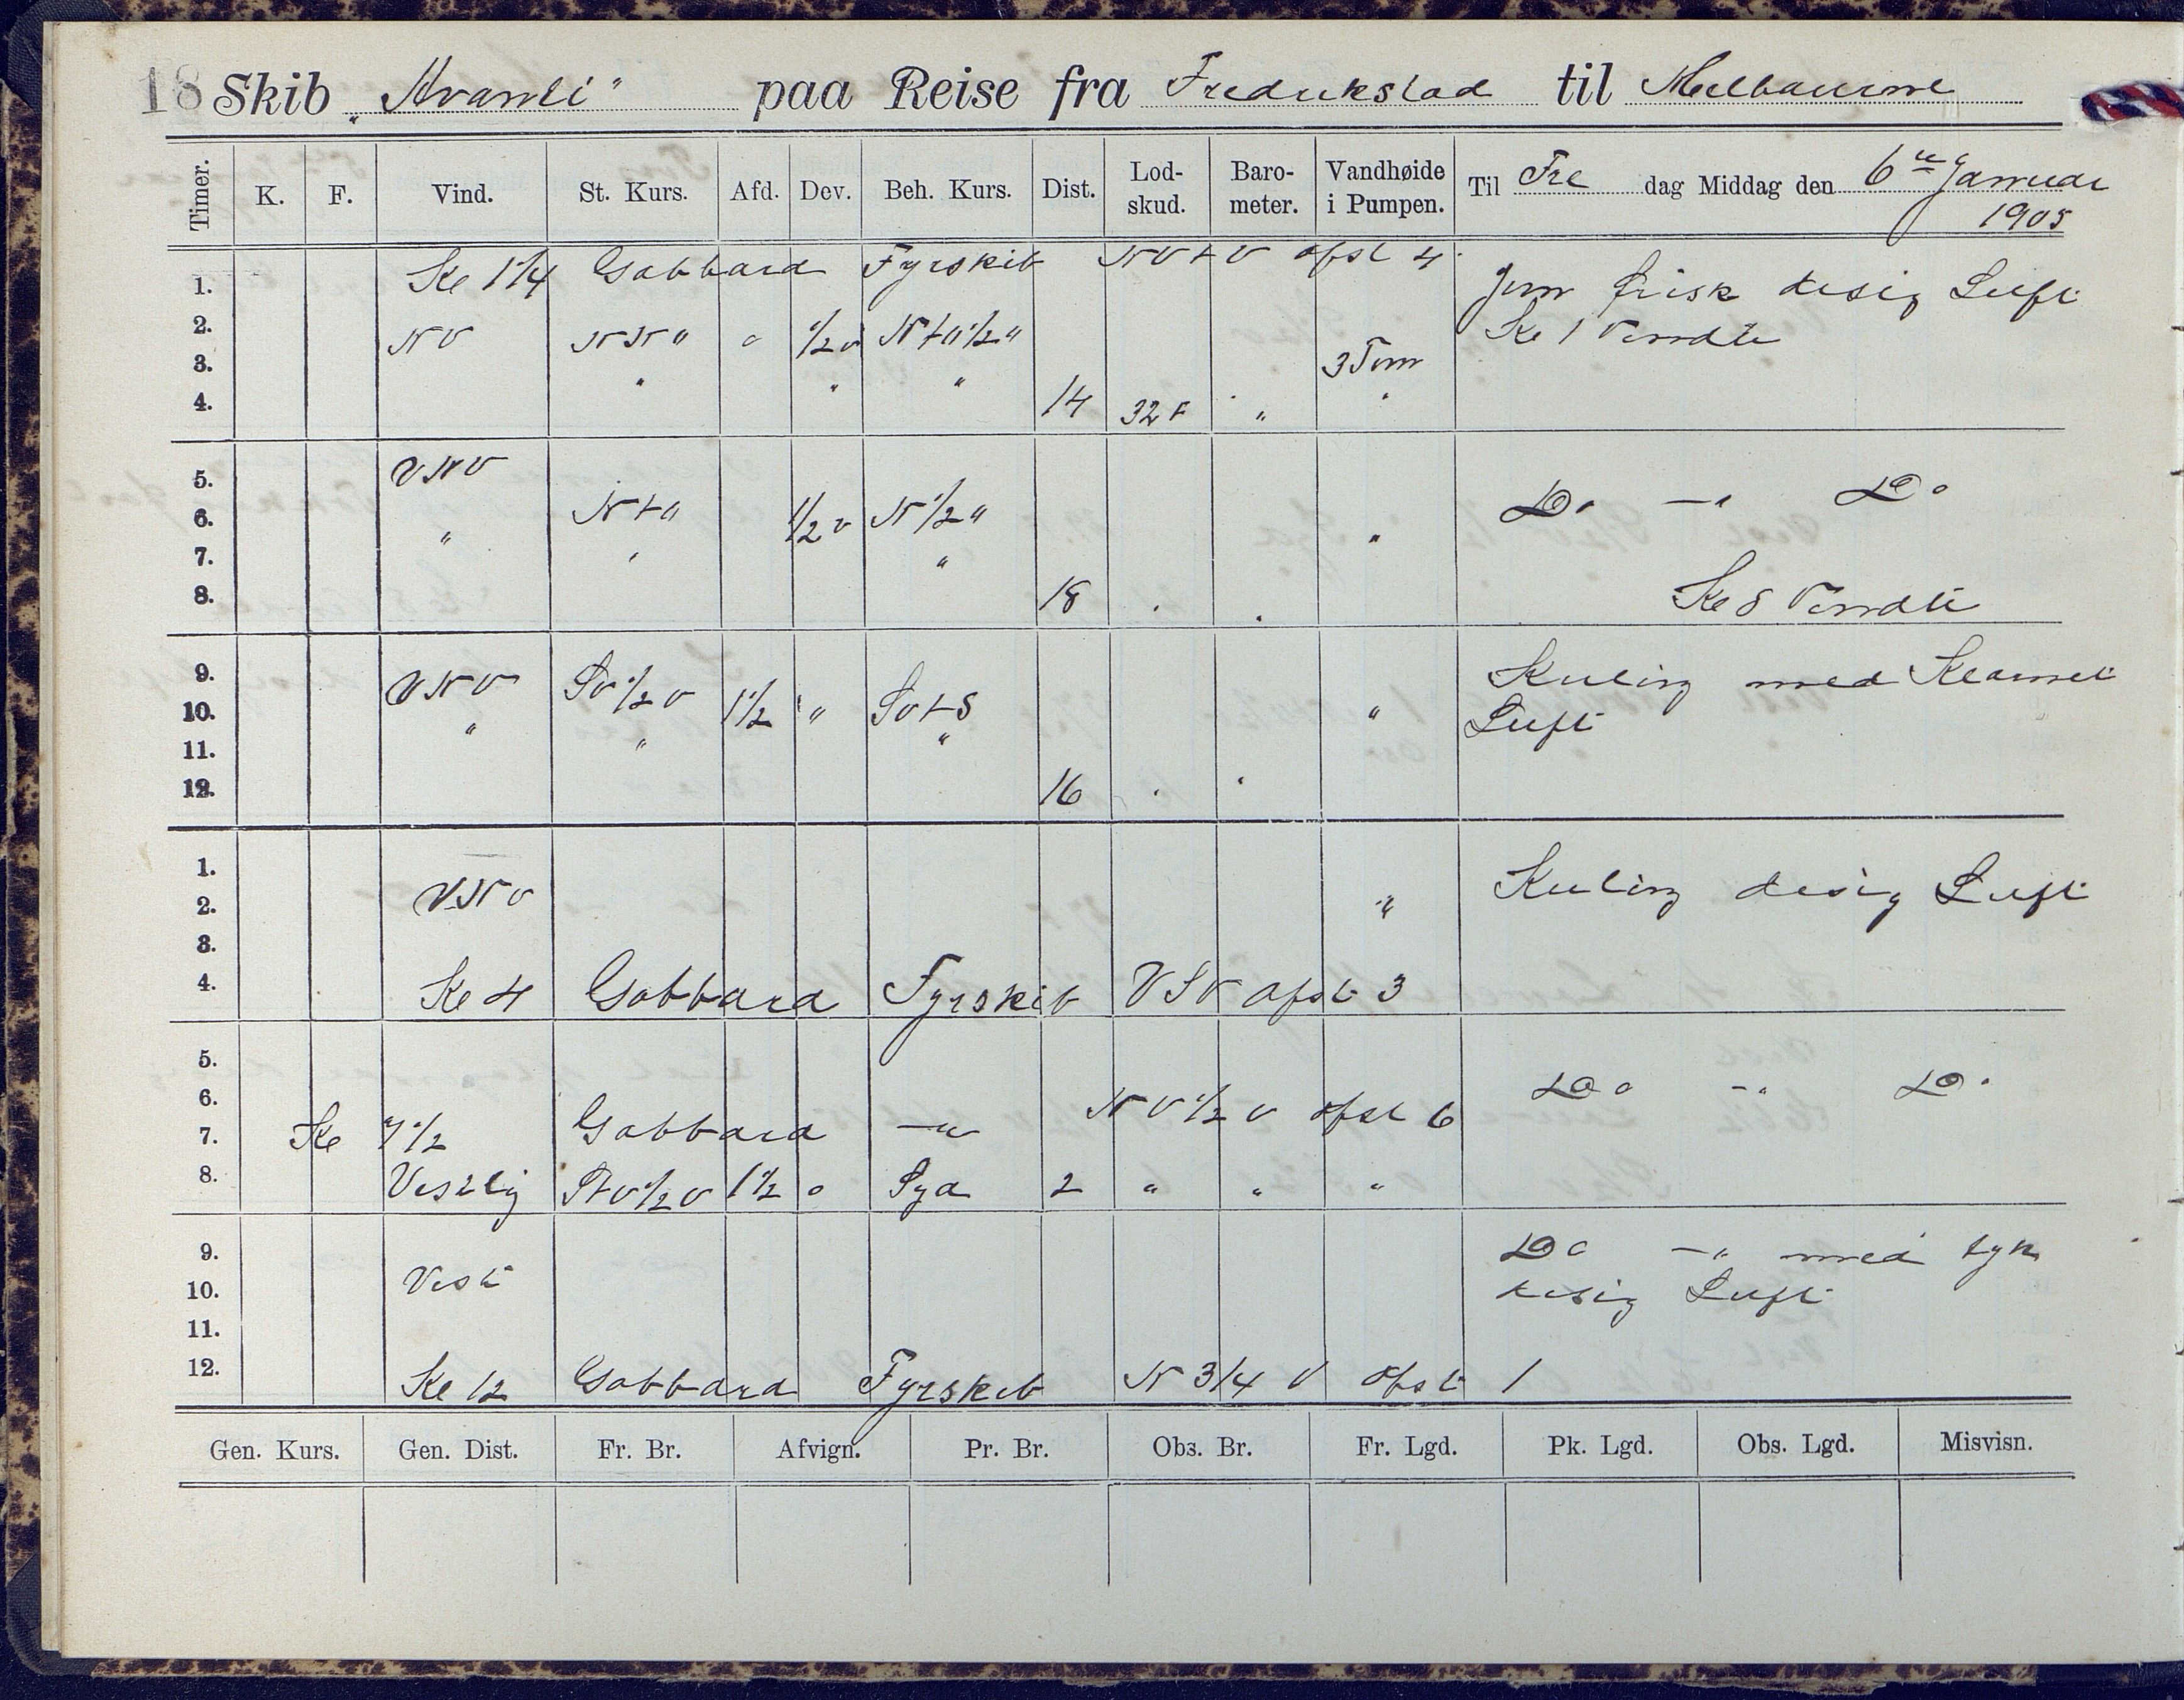 18 Skib „Avanti" paa Reise fra Fredrikstad til Melbourne
Timer. K. F. Vind. St. Kurs. Afd. Dev. Beh. Kurs. Dist. Lod-skud. Baro-meter. Vandhøide i Pumpen. Til Fre dag Middag den 6te Januar 1905
Kl 1 1/4 Gabbard Fyrskib NVtV afst 4
1. Jevn frisk disig Luft
2. NV NN" 0 1/2 v Nt" 1/2 " Kl 1 Vendte
3. " " " 3 Tom
4. 14 32 F " "
5. VNV
6. Nt" 1/2 v N 1/2 " Do —" Do
7. " " " "
8. 18 Kl 8 Vendte
9. VNV SV 1/2 V Kuling med Klarnet
10. 1 1/2 " SVtS " Luft
11. " " "
12. 16
1. Kuling disig Luft
2. VNV "
3.
4. Kl 4 Gabbard Fyrskib VSV afst 3
5.
6. Do —" Do
7. Kl 7 1/2 Gabbard —" NV 1/2 V afst 6
8. Vestlig StV 1/2 V 1 1/2 0 Syd 2 " " "
9. Do —" med tyk
10. Vest disig Luft
11.
12. Kl 12 Gabbard Fyrskib N 3/4 V afst 1
Gen. Kurs. Gen. Dist. Fr. Br. Afvign. Pr. Br. Obs. Br. Fr. Lgd. Pk. Lgd. Obs. Lgd. Misvisn.